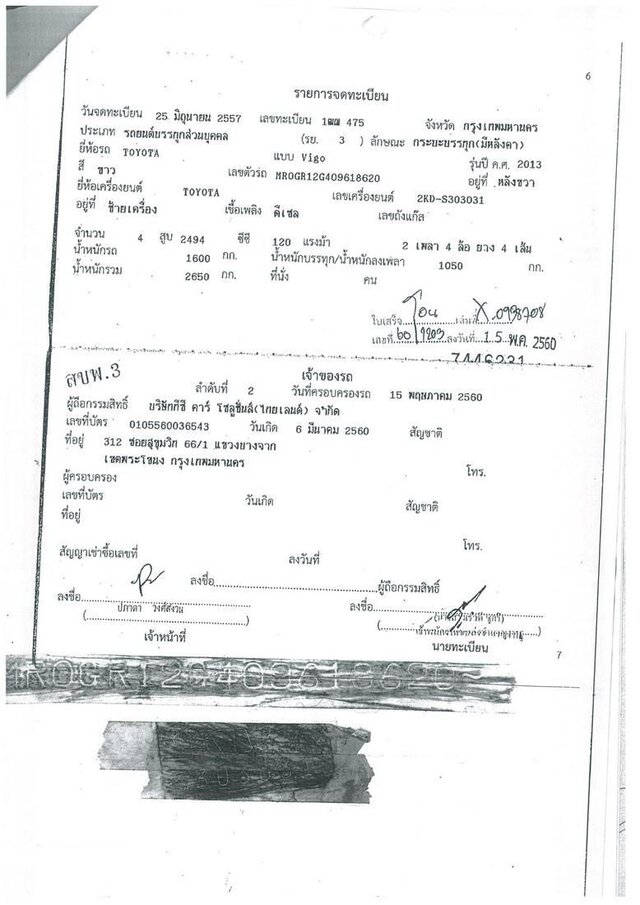 6
รายการจดทะเบียน
วันจดทะเบียน 25 มิถุนายน 2557 เลขทะเบียน 1ฒฒ 475 จังหวัด กรุงเทพมหานคร
ประเภท รถยนต์บรรทุกส่วนบุคคล (รย. 3 ) ลักษณะ กระบะบรรทุก(มีหลังคา)
ยี่ห้อรถ TOYOTA แบบ Vigo รุ่นปี ค.ศ. 2013
สี ขาว เลขตัวรถ MROGR12G409618620 อยู่ที่ หลังขวา
ยี่ห้อเครื่องยนต์ TOYOTA เลขเครื่องยนต์ 2KD-S303031
อยู่ที่ ซ้ายเครื่อง เชื้อเพลิง ดีเซล เลขถังแก๊ส
จำนวน 4 สูบ 2494 ซีซี 120 แรงม้า 2 เพลา 4 ล้อ ยาง 4 เส้น
น้ำหนักรถ 1600 กก. น้ำหนักบรรทุก/น้ำหนักลงเพลา 1050 กก.
น้ำหนักรวม 2650 กก. ที่นั่ง คน
โอน
ใบเสร็จ เล่มที่ 0998708
เลขที่ 60 ลงวันที่ 15 พ.ค. 2560
สบพ.3
เจ้าของรถ
ลำดับที่ 2 วันที่ครอบครองรถ 15 พฤษภาคม 2560
ผู้ถือกรรมสิทธิ์ บริษัทกีซี คาร์ โซลูชั่นส์(ไทยแลนด์) จำกัด
เลขที่บัตร 0105560036543 วันเกิด 6 มีนาคม 2560 สัญชาติ
ที่อยู่ 312 ซอยสุขุมวิท 66/1 แขวงบางจาก
เขตพระโขนง กรุงเทพมหานคร โทร.
ผู้ครอบครอง
เลขที่บัตร วันเกิด สัญชาติ
ที่อยู่
โทร.
สัญญาเช่าซื้อเลขที่ ลงวันที่
ลงชื่อ ผู้ถือกรรมสิทธิ์
ลงชื่อ ลงชื่อ
ปภาดา วงศ์สังวน
เจ้าหน้าที่ นายทะเบียน
7
MROGR12G409618620